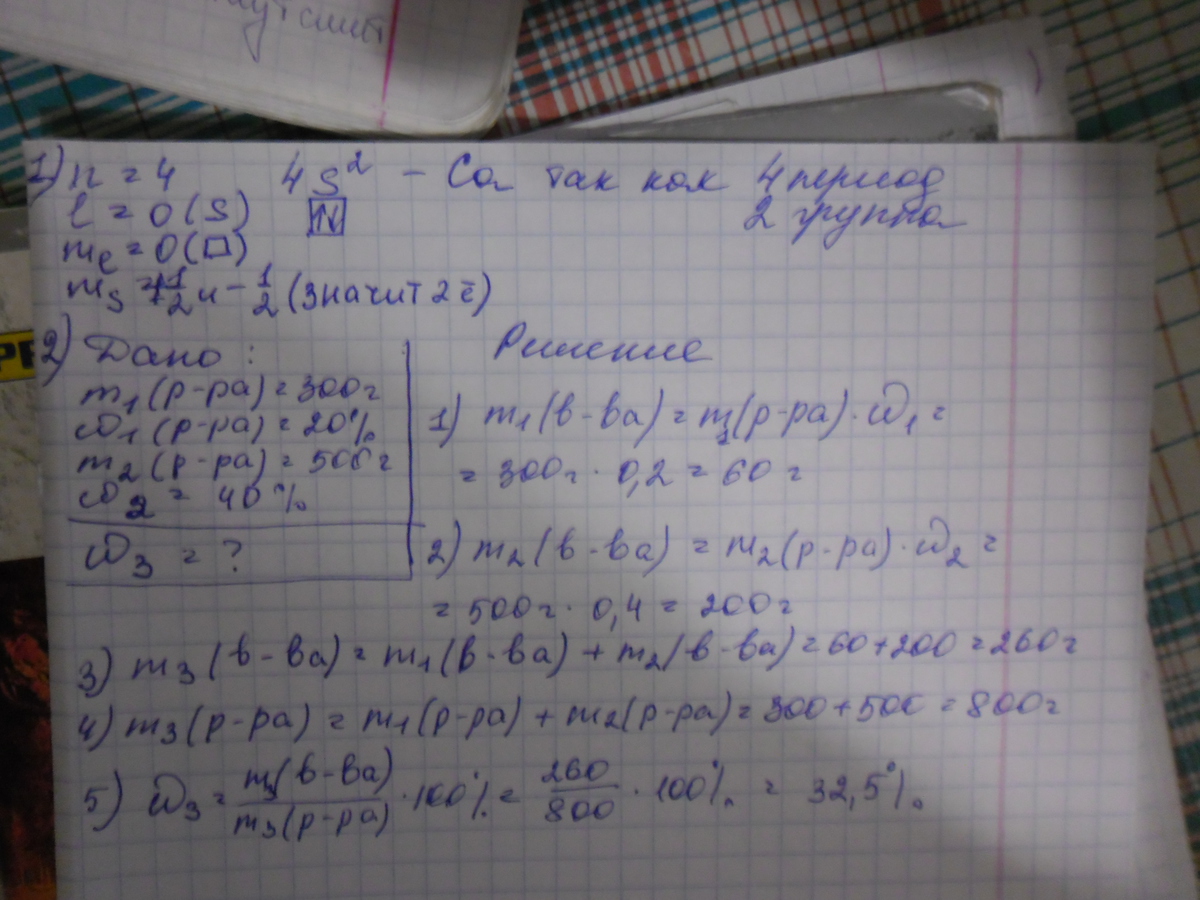 1) n = 4 4S² – Ca так как 4 период
l = 0 (S) 2 группа
mₑ = 0 (□)
mₛ = +1/2 и –1/2 (значит 2ē)
2) Дано: Решение
m₁ (р-ра) = 300г
ω₁ (р-ра) = 20%
m₂ (р-ра) = 500г
ω₂ = 40%
ω₃ = ?
1) m₁ (в-ва) = m₁(р-ра) · ω₁ =
= 300г · 0,2 = 60 г
2) m₂ (в-ва) = m₂(р-ра) · ω₂ =
= 500г · 0,4 = 200г
3) m₃ (в-ва) = m₁ (в-ва) + m₂(в-ва) = 60+200 = 260г
4) m₃ (р-ра) = m₁ (р-ра) + m₂(р-ра) = 300+500 = 800г
5) ω₃ = m₃(в-ва)/m₃(р-ра) · 100% = 260/800 · 100% = 32,5%